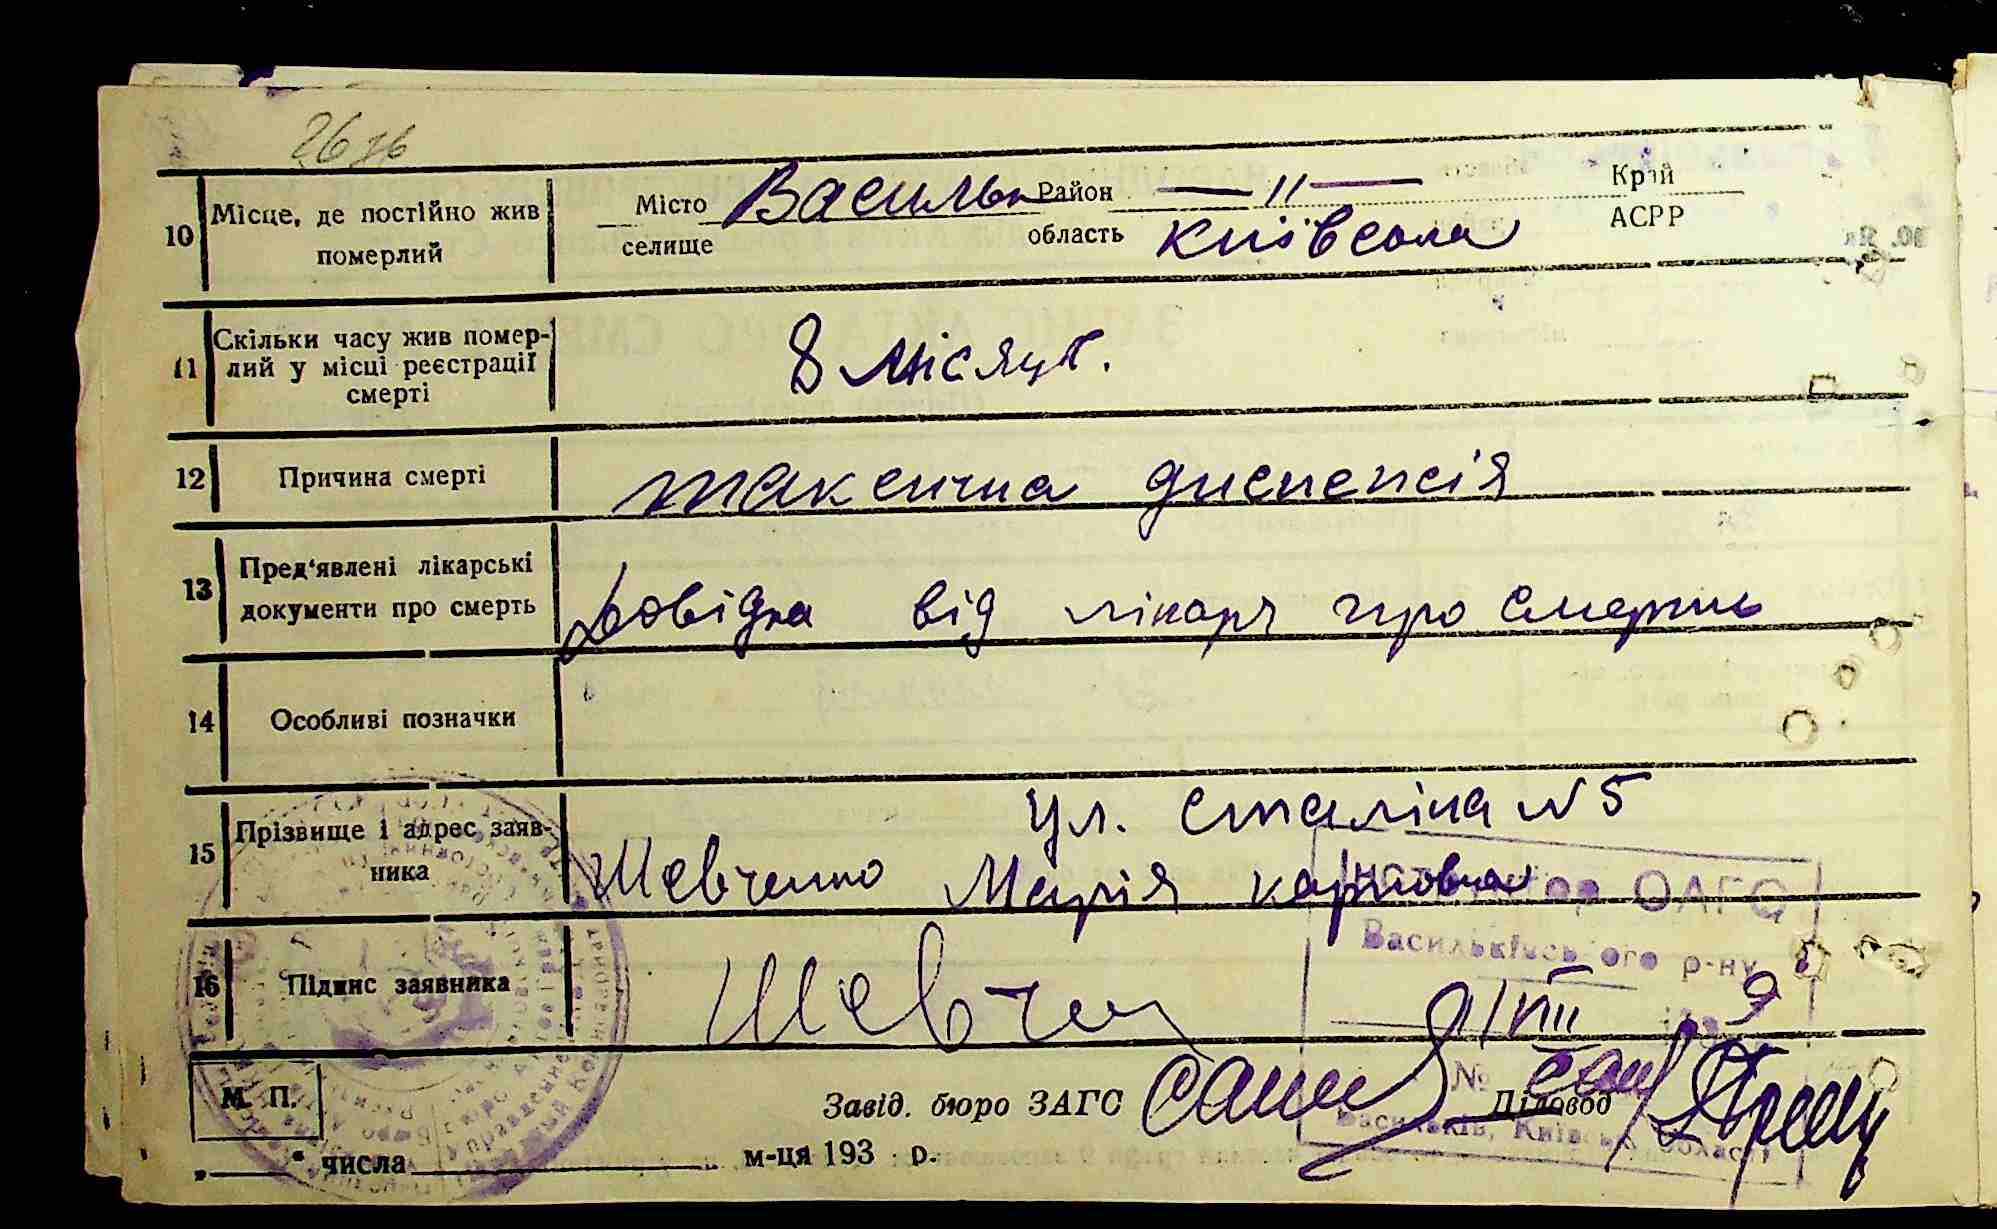 26 зв
10 Місце, де постійно жив померлий
Місто селище Васильк Район — 〃 — Край
область Київсска АСРР
11 Скільки часу жив помер-
лий у місці реєстрації
смерті
8 місяців.
12 Причина смерті
таксична диспепсія
13 Пред'явлені лікарські
документи про смерть
Довідка від лікаря про смерть
14 Особливі позначки
15 Прізвище і адрес заяв-
ника
ул. Сталіна N 5
Шевченко Марія Карповна
Інспектор ОАГС
Васильківського р-ну
16 Підпис заявника
Шевчен
9/VIII 9
№
Васильків, Київської області
М. П.
Завід. бюро ЗАГС
Діловод
„ “ числа м-ця 193 р.